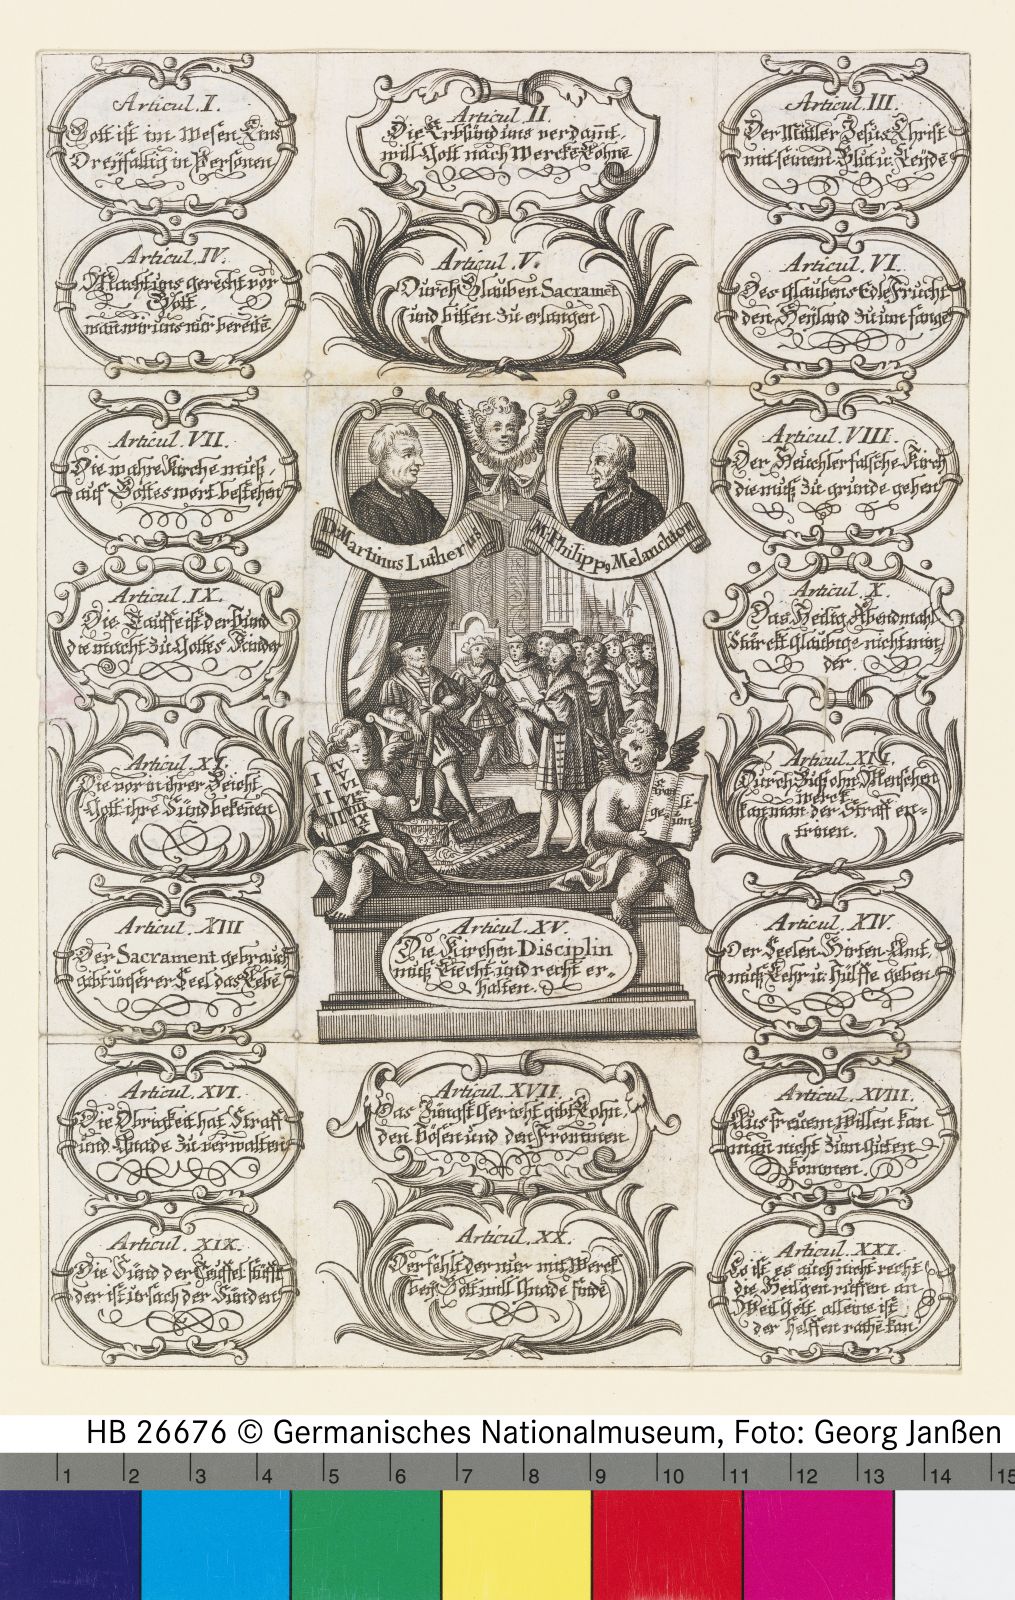 Articul. I.
Gott ist im Wesen Eins
Dreyfaltig in Personen
Articul. II.
Die Erbsünd uns verdam̄t,
will Gott nach Wercke Lohnē
Articul. III.
Der Mittler Jesus Christ
mit seinem Blut u. Leyde
Articul. IV.
Macht uns gerecht vor
Gott
man wir uns nur bereitē
Articul. V.
Durch Glauben Sacramēt
und bitten zu erlangen
Articul. VI.
Des Glaubens Edle Frucht
den Heyland zu um fange
Articul. VII.
Die wahre Kirche muß,
auf Gottes wort bestehen
Articul. VIII.
Der Heuchler falsche Kirch
die muß zu grunde gehen
D. Martinus Lutherus
M. Philipp9 Melanchton
Articul. IX.
Die Tauffe ist der Bund
die macht zu Gottes Kinder
Articul. X.
Das Heilig Abendmahl
Stärckt Glaubige nicht min,,
der.
Articul. XI.
Die vor in ihrer Beicht
Gott ihre Sünd bekēnen
Articul. XII.
Durch Buß ohn Menschen
werck
kan man der Straff en,,
trinen.
I
II
III
IV
V
VI
VII
IX
X
Articul. XIII
Der Sacrament gebrauch
gibt unserer Seel das Lebē
Articul. XIV.
Der Seelen Hirten Amt,
muß Lehr u. Hülffe geben
Articul. XV.
Die Kirchen Disciplin
muß Kiecht und recht er,,
halten.
Articul. XVI.
Die Obrigkeit hat Straff
und Gnade zu verwalten
Articul. XVII.
Das Jüngst Gericht gibt Lohn,
den Bösen und den Frommen
Articul. XVIII.
Aus freuem Willen kan
man nicht zum Guten
kommen.
Articul. XIX.
Die Sünd der Teuffel stifft
der ist ursach der Sünden
Articul. XX.
Der fehlt der nur mit Werck
beÿ Gott will Gnade findē
Articul. XXI.
Es ist es auch nicht recht
die Heiligen rüffen an
Weil Gott alleine ist
der helffen rathē kan
HB 26676 © Germanisches Nationalmuseum, Foto: Georg Janßen
1 2 3 4 5 6 7 8 9 10 11 12 13 14 15